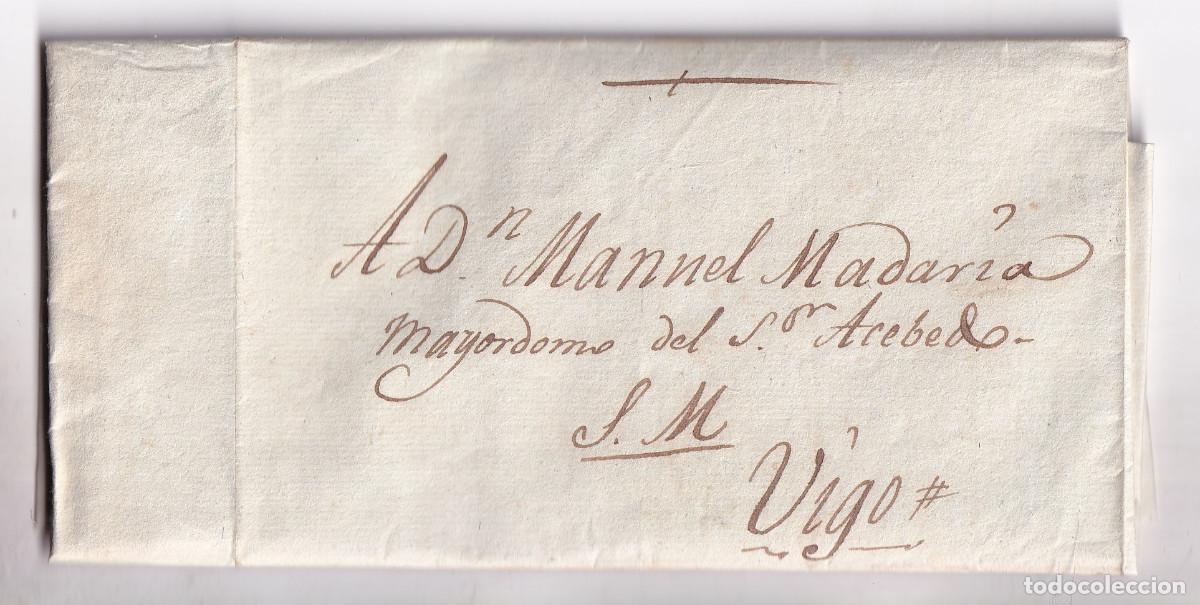 A Dn. Manuel Madaria
Mayordomo del S.or Acebedo
S. M
Vigo #
todocoleccion